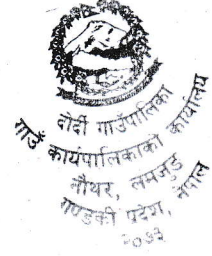 दोर्दी गाउँपालिका
गाउँ कार्यपालिकाको कार्यालय
नौथर, लमजुङ
गण्डकी प्रदेश, नेपाल
२०७३